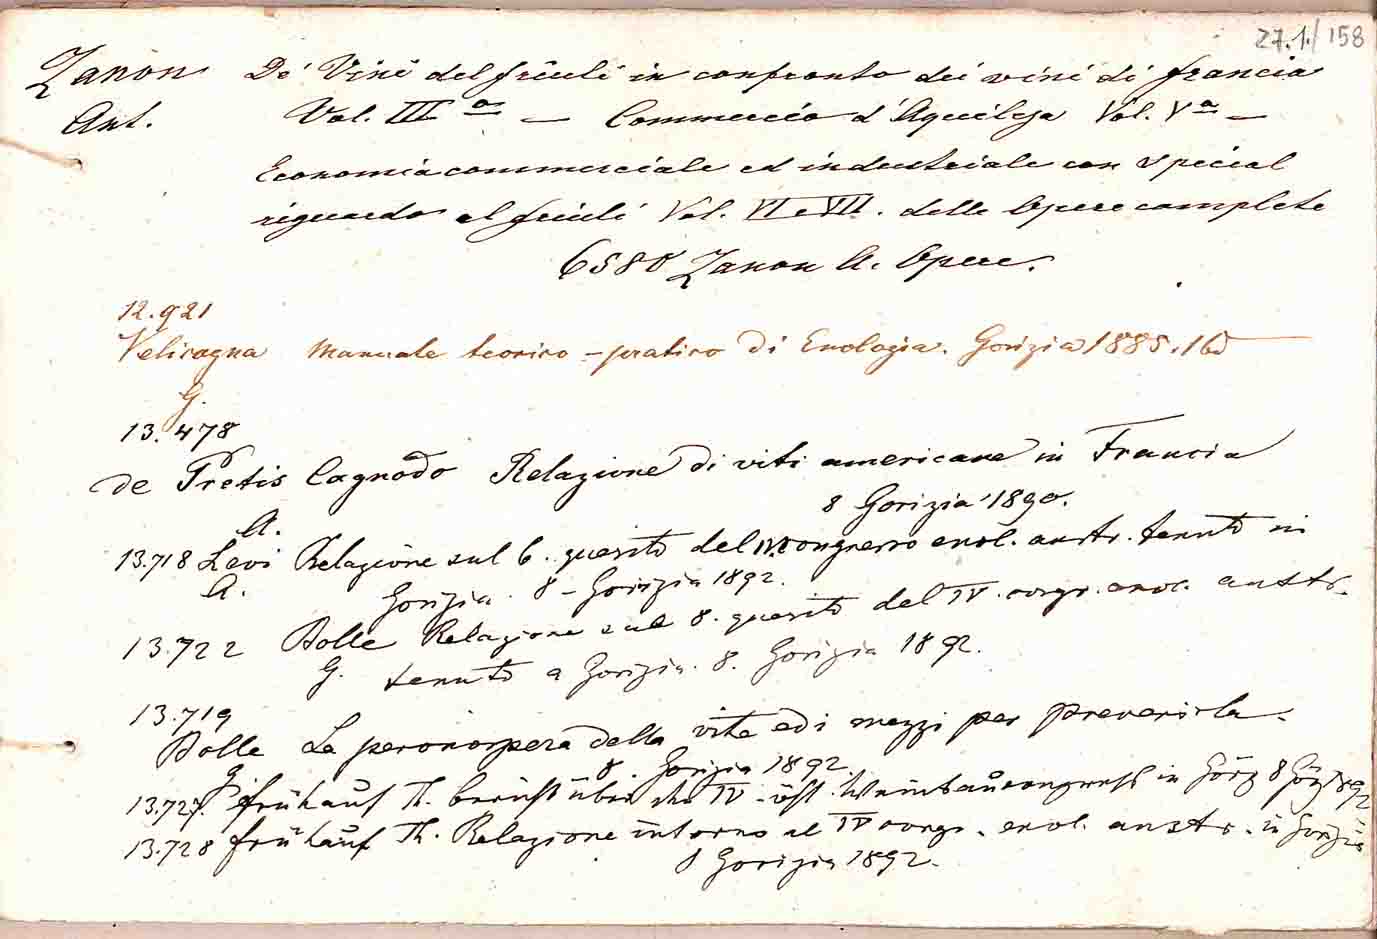 27.1./158
Zanon De' Vini del Friuli in confronto dei vini di Francia
Ant. Vol. III º — Commercio d'Aquileja Vol. Vº —
Economia commerciale ed industriale con special
riguardo al Friuli Vol. VI e VII. delle Opere complete
6580 Zanon A. Opere.
12.921
Velicogna Manuale teorico-pratico di Enologia. Gorizia 1885. 16º
G.
13.478
de Pretis Cagnodo Relazione di viti americane in Francia
A. 8 Gorizia 1890.
13.718 Levi Relazione sul 6. quesito del IV. congresso enol. austr. tenuto in
A. Gorizia. 8 - Gorizia 1892.
13.722 Bolle Relazione sul 8. quesito del IV. congr. enol. austr.
G. tenuto a Gorizia. 8. Gorizia 1892.
13.719
Bolle La peronospera della vite ed i mezzi per prevenirla.
G. 8. Gorizia 1892.
13.727. Frühauf Th. Bericht über den IV. öst. Weinbaucongress in Görz 8 Görz 1892
13.728 Frühauf Th. Relazione intorno al IV congr. enol. austr. in Gorizia
8 Gorizia 1892.